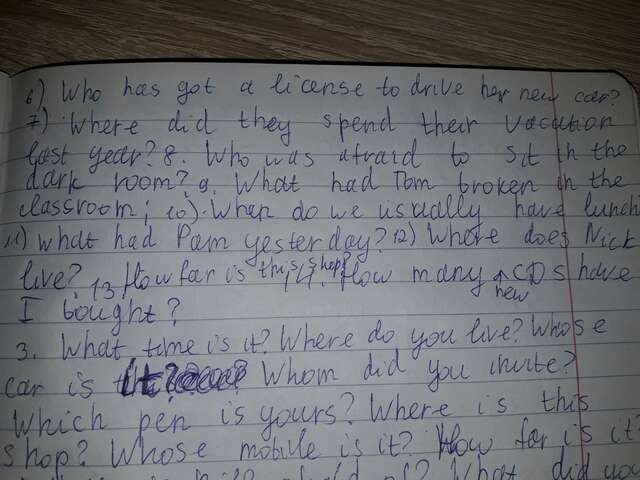 6) Who has got a license to drive her new car?
7) Where did they spend their vacation
last year? 8. Who was afraid to sit in the
dark room? 9. What had Tom broken in the
classroom; 10) When do we usually have lunch
11) what had Pam yesterday? 12) Where does Nick
live? 13 How far is this shop? 14. How many new CDs have
I bought?
3. What time is it? Where do you live? Whose
car is it? Whom did you invite?
Which pen is yours? Where is this
shop? Whose mobile is it? How far is it?
What did you